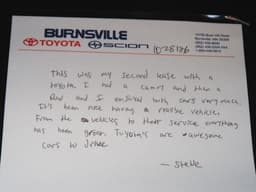 BURNSVILLE
TOYOTA SCION
This was my second lease with a
toyota I had a camry and then a
and I enjoyed both cars very much.
It's been nice having a reliable vehicle.
From the vehicles to their service everything
has been great. Toyota's are awesome
cars to drive.
— Stelle